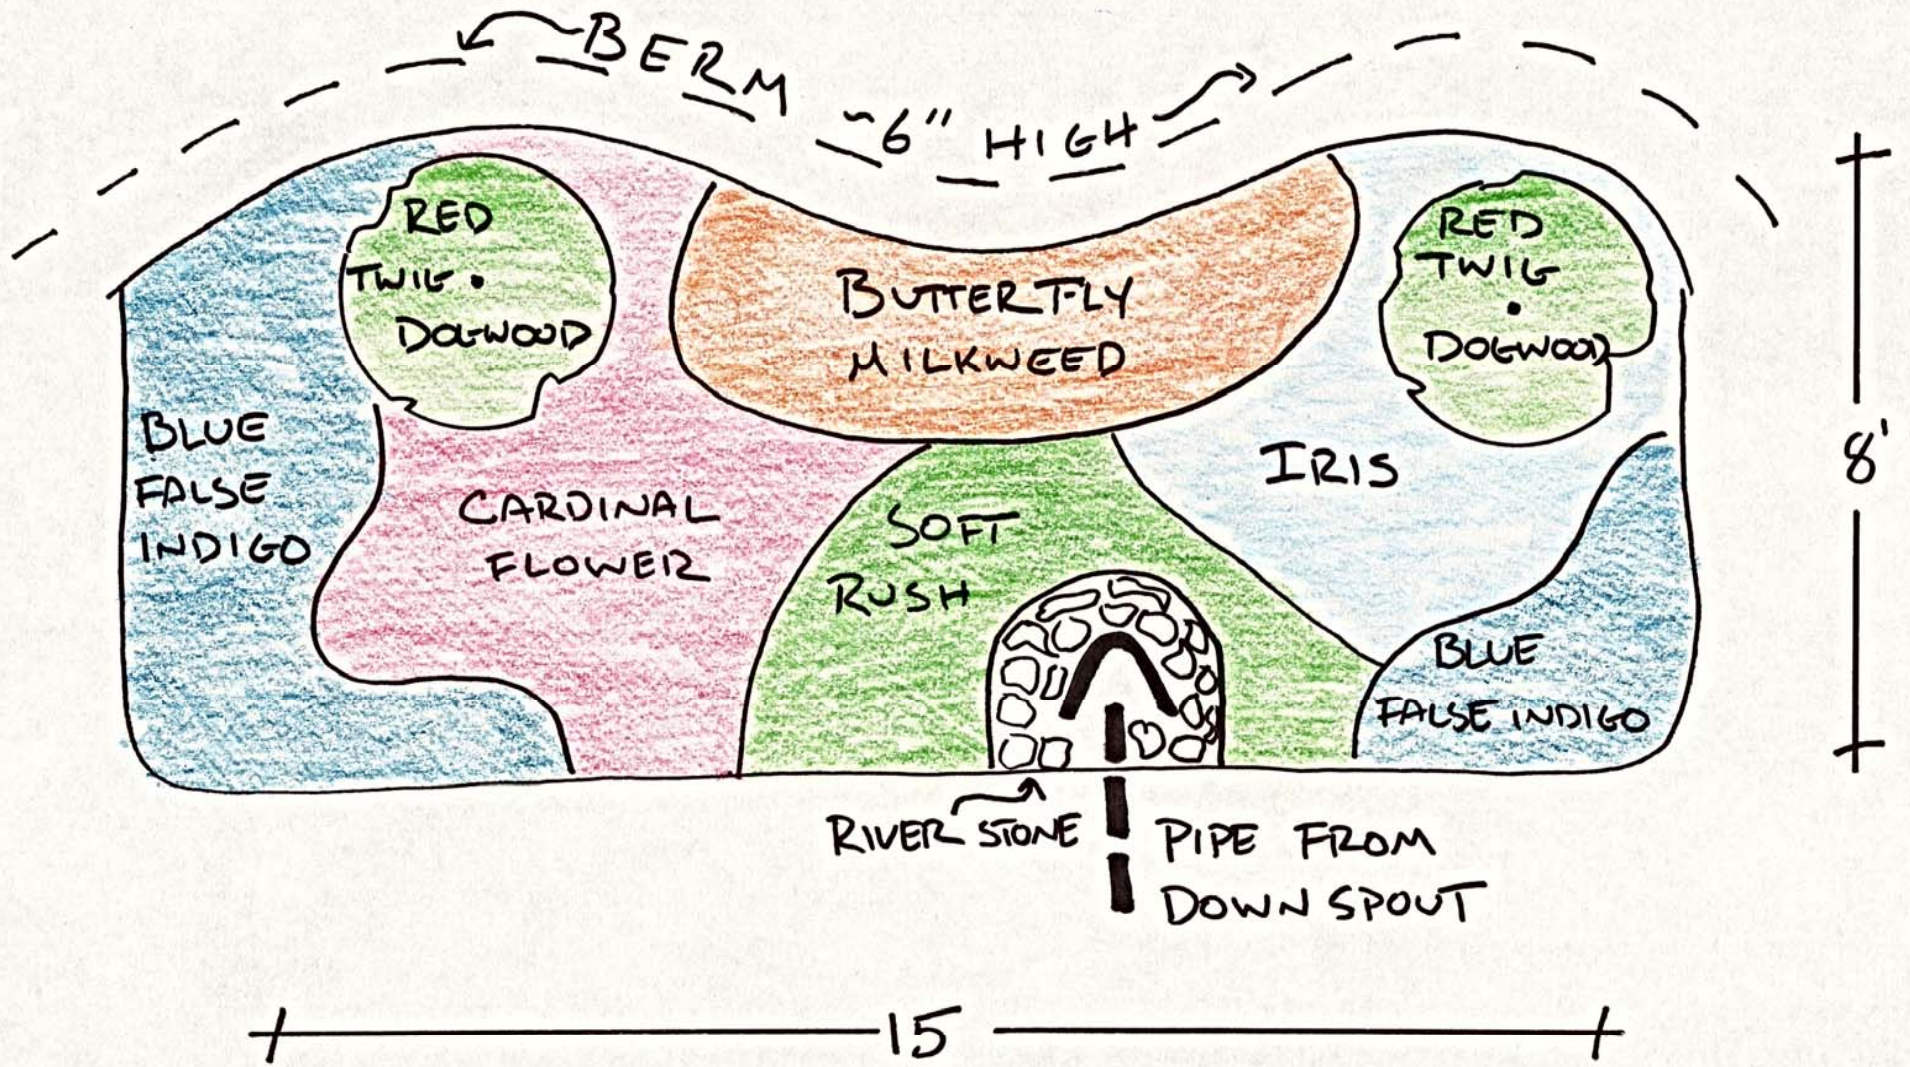 BERM ~6" HIGH
RED
TWIG
DOGWOOD
BUTTERFLY
MILKWEED
RED
TWIG
DOGWOOD
BLUE
FALSE
INDIGO
CARDINAL
FLOWER
SOFT
RUSH
IRIS
8'
BLUE
FALSE INDIGO
RIVER STONE
PIPE FROM
DOWN SPOUT
15